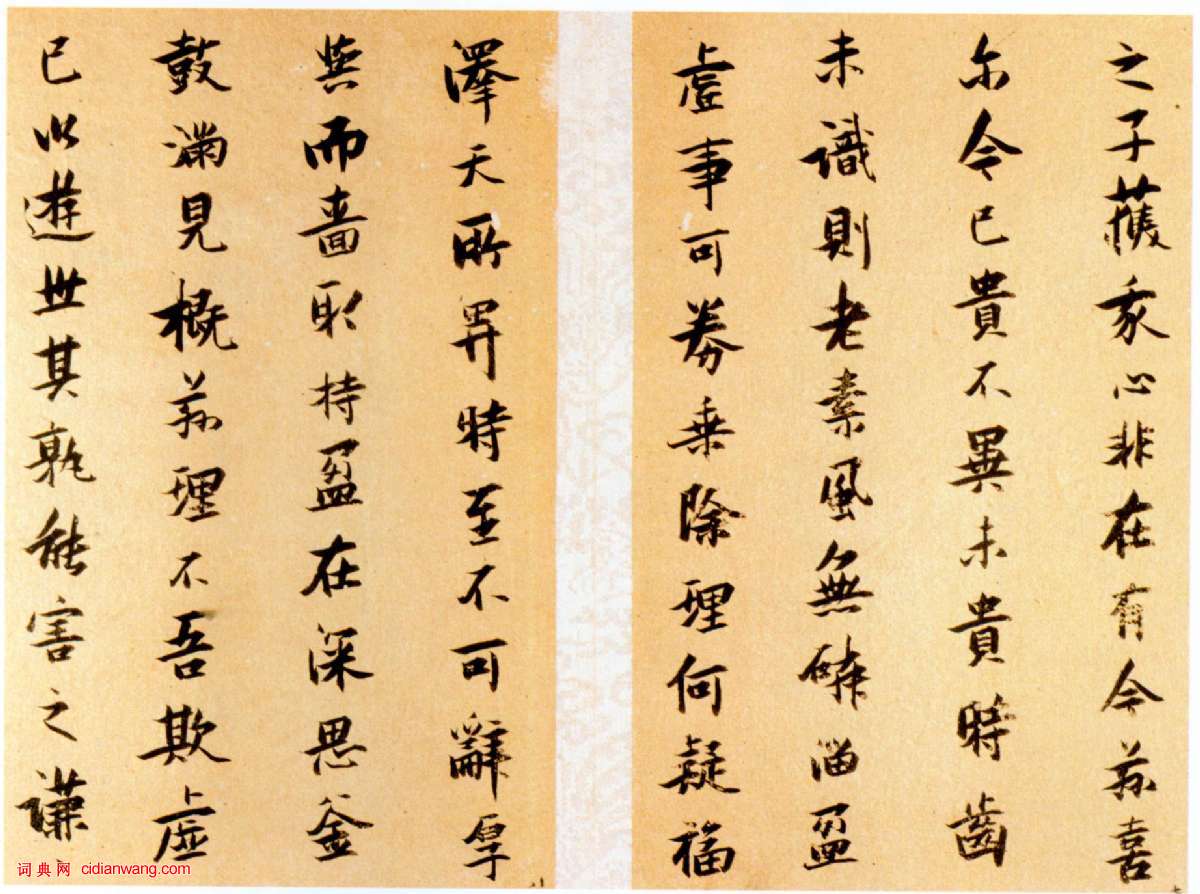 之子獲我心非在有今為喜
尔今已貴不異未貴時齒
未識則老素風無缺淄盈
虛事可券乗除理何疑福
澤天所畀時至不可辭厚
與而嗇取持盈在深思釜
鼓滿見概茲理不吾欺虛
已以遊世其孰能害之謙
词典网 cidianwang.com